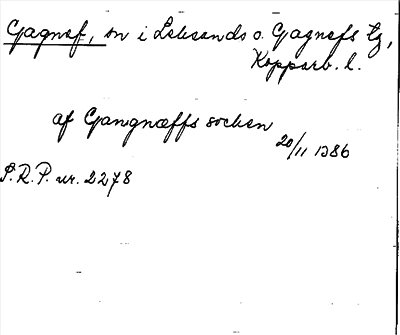 Gagnef, sn i Leksands o. Gagnefs tg,
Kopparb. l.
af Gangnæffs sochen
20/11 1386
S.R.P. nr. 2278